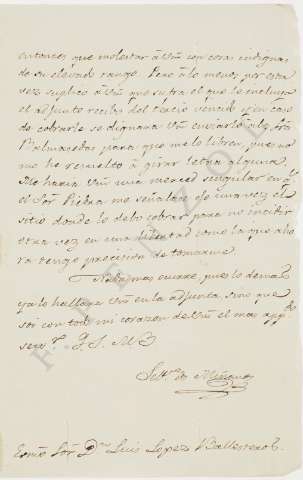 entonces que molestar á Vm con cosas indignas
de su elevado rango. Pero á lo menos por esta
vez suplico á Vm que sufra el que le incluya
el adjunto recibo del tercio vencido y en caso
de cobrarle se dignara Vm enviarlo á los Sres
Balmasedas para que me lo libren, pues no
me he resuelto á girar letra alguna.
Me haria Vm una merced singular en q.e
el Sor. Piedra me señalase de una vez el
sitio donde lo debo cobrar para no incidir
otra vez en una libertad como la que aho
ra tengo precision de tomarme
Nada mas ocurre, pues lo demas
ya lo hallara Vm en la adjunta, sino que
soi con todo mi corazon de Vm el mas
seg.o S.r Q. S. M. B
Seb.n de Miñano
Exmo Sor. Dn Luis Lopez Ballesteros.